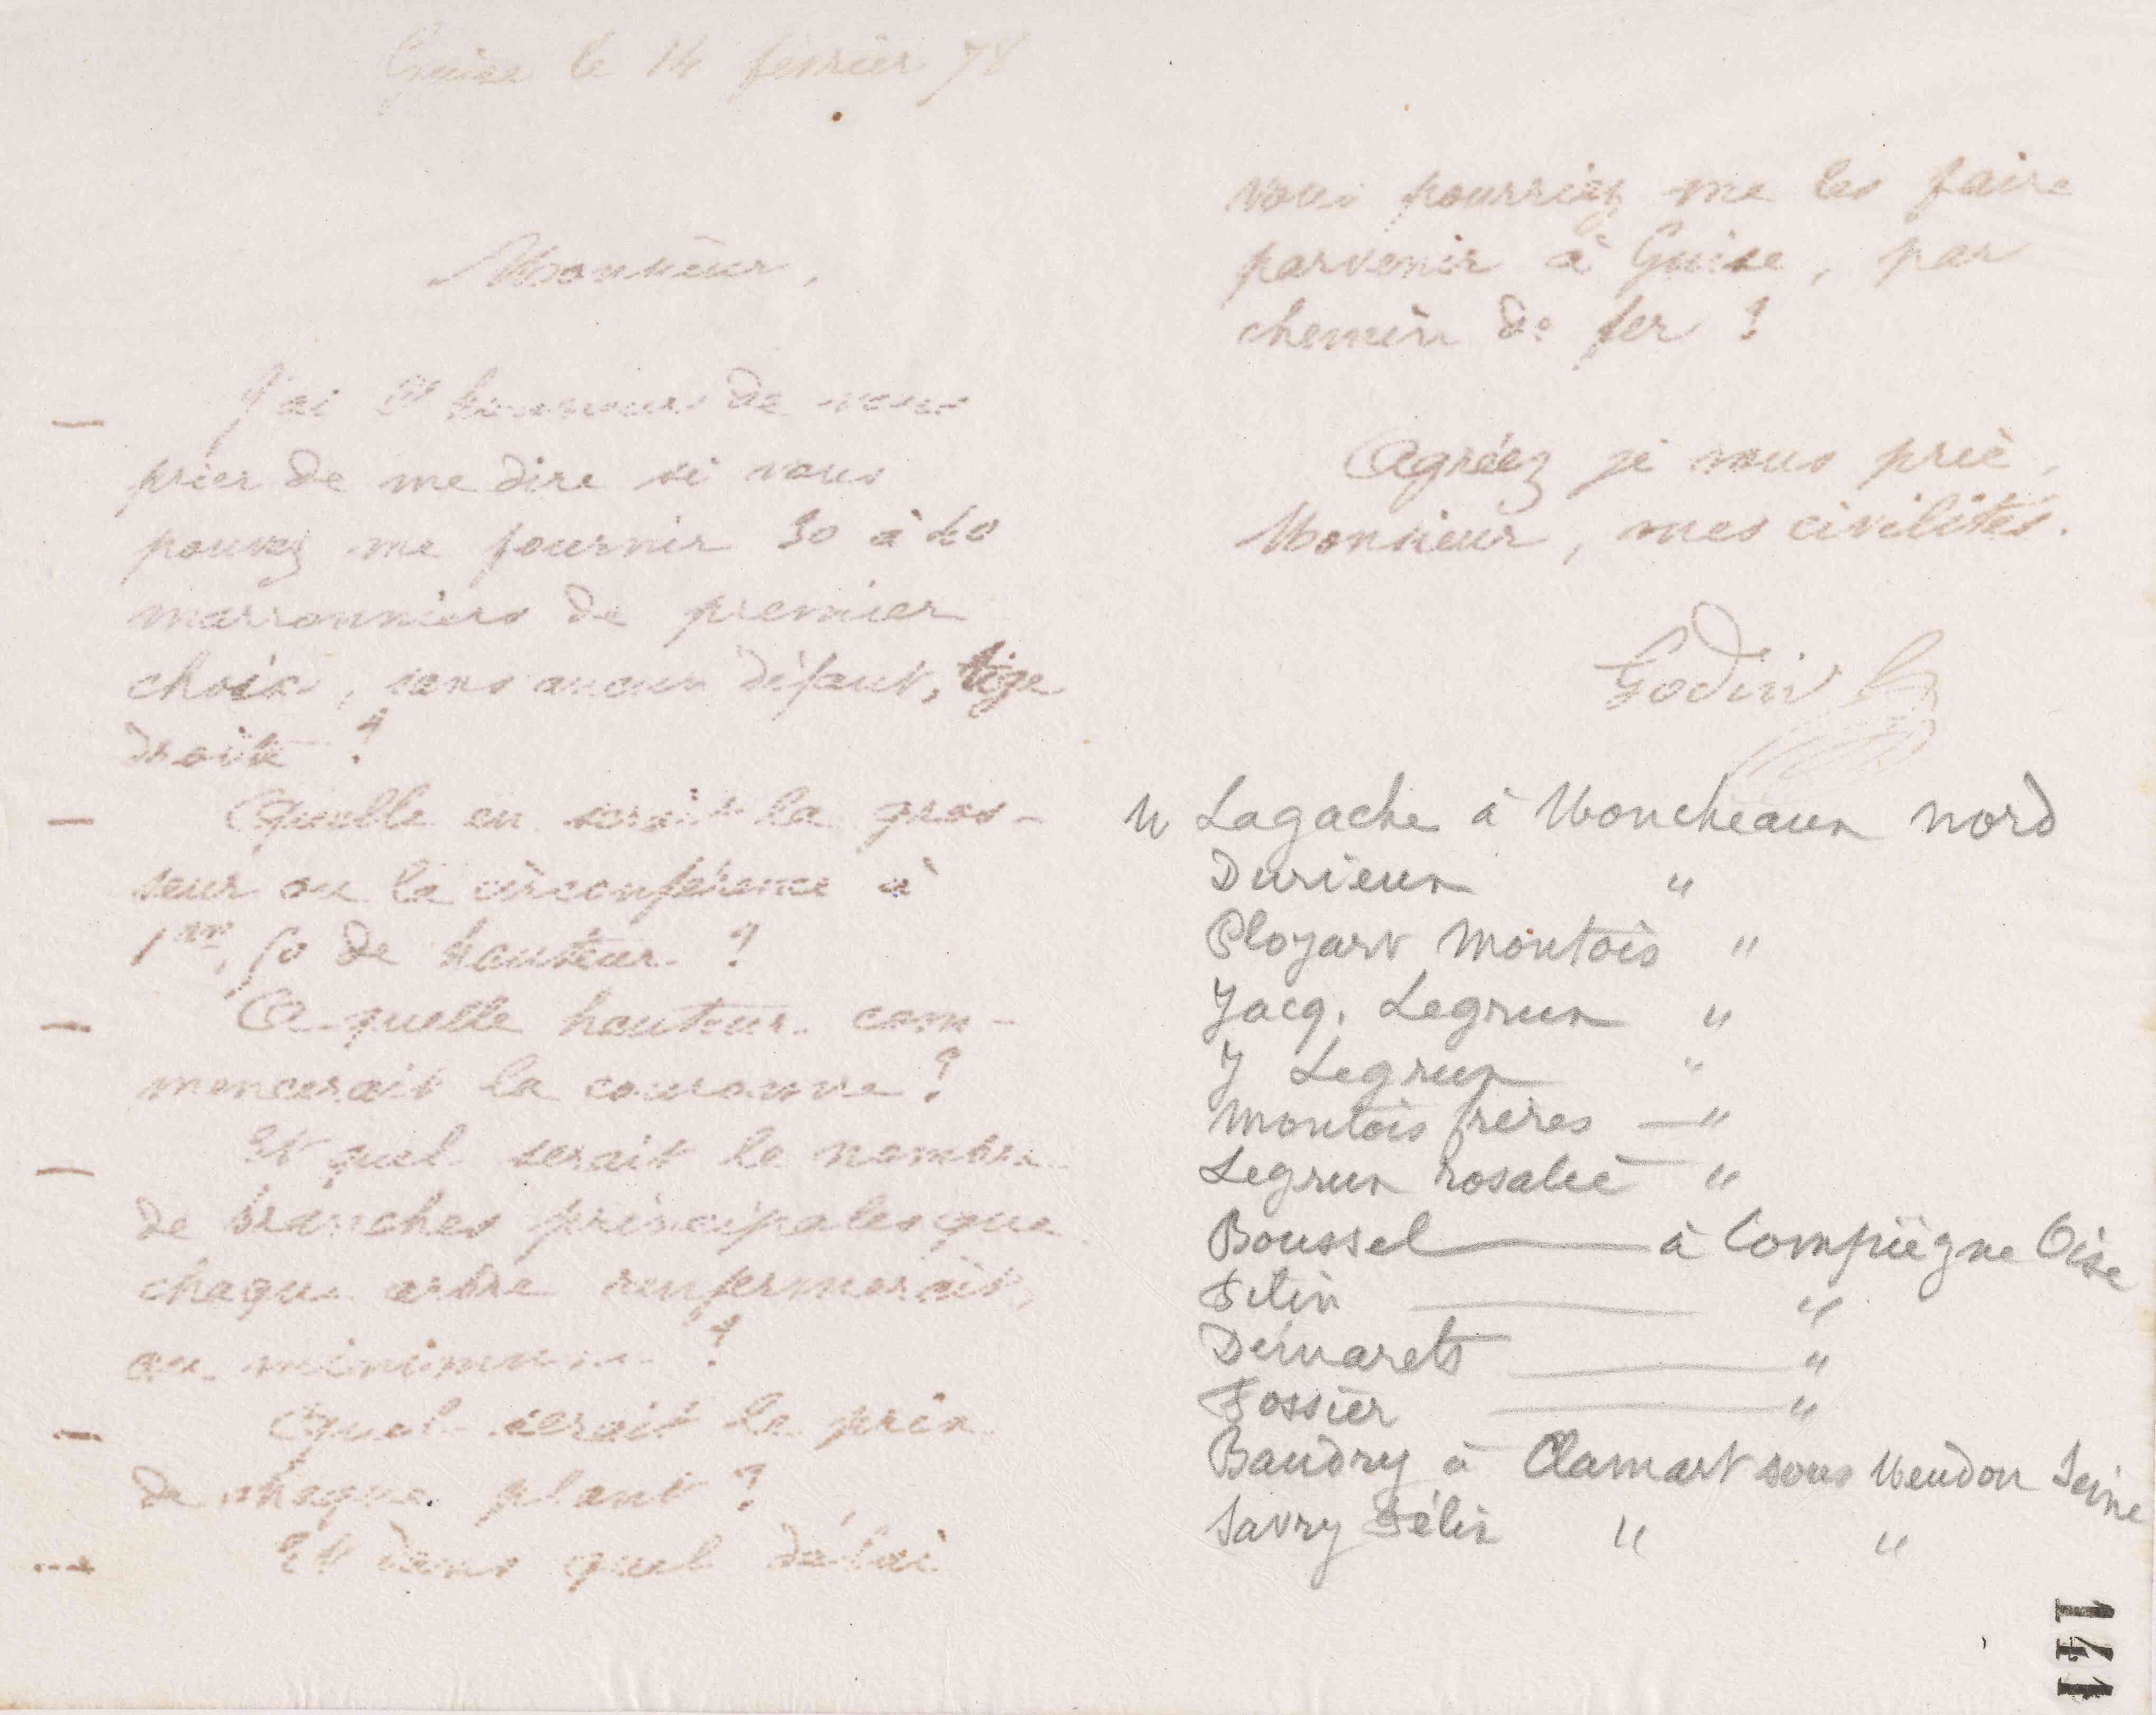 Guise le 14 février 78
Monsieur,
J'ai l'honneur de vous
prier de me dire si vous
pouvez me fournir 30 à 40
marronniers de premier
choix, sans aucun défaut, tige
droite ?
Quelle en serait la gros-
seur ou la circonférence à
1m,50 de hauteur ?
A quelle hauteur com-
mencerait la couronne ?
Et quel serait le nombre
de branches principales que
chaque arbre renfermerait,
au minimum ?
Quel serait le prix
de chaque plant ?
Et dans quel délai
vous pourriez me les faire
parvenir à Guise, par
chemin de fer ?
Agréez je vous prie,
Monsieur, mes civilités.
Godin
M Lagache à Moncheaux Nord
Durieux "
Ployart Montois "
Jacq. Legrux "
J Legrux "
Montois frères — "
Legrux rosalie — "
Boussel — à Compiègne Oise
— "
— "
Fossier — "
Baudry à Clamart sous Meudon Seine
Savry Félix " "
141